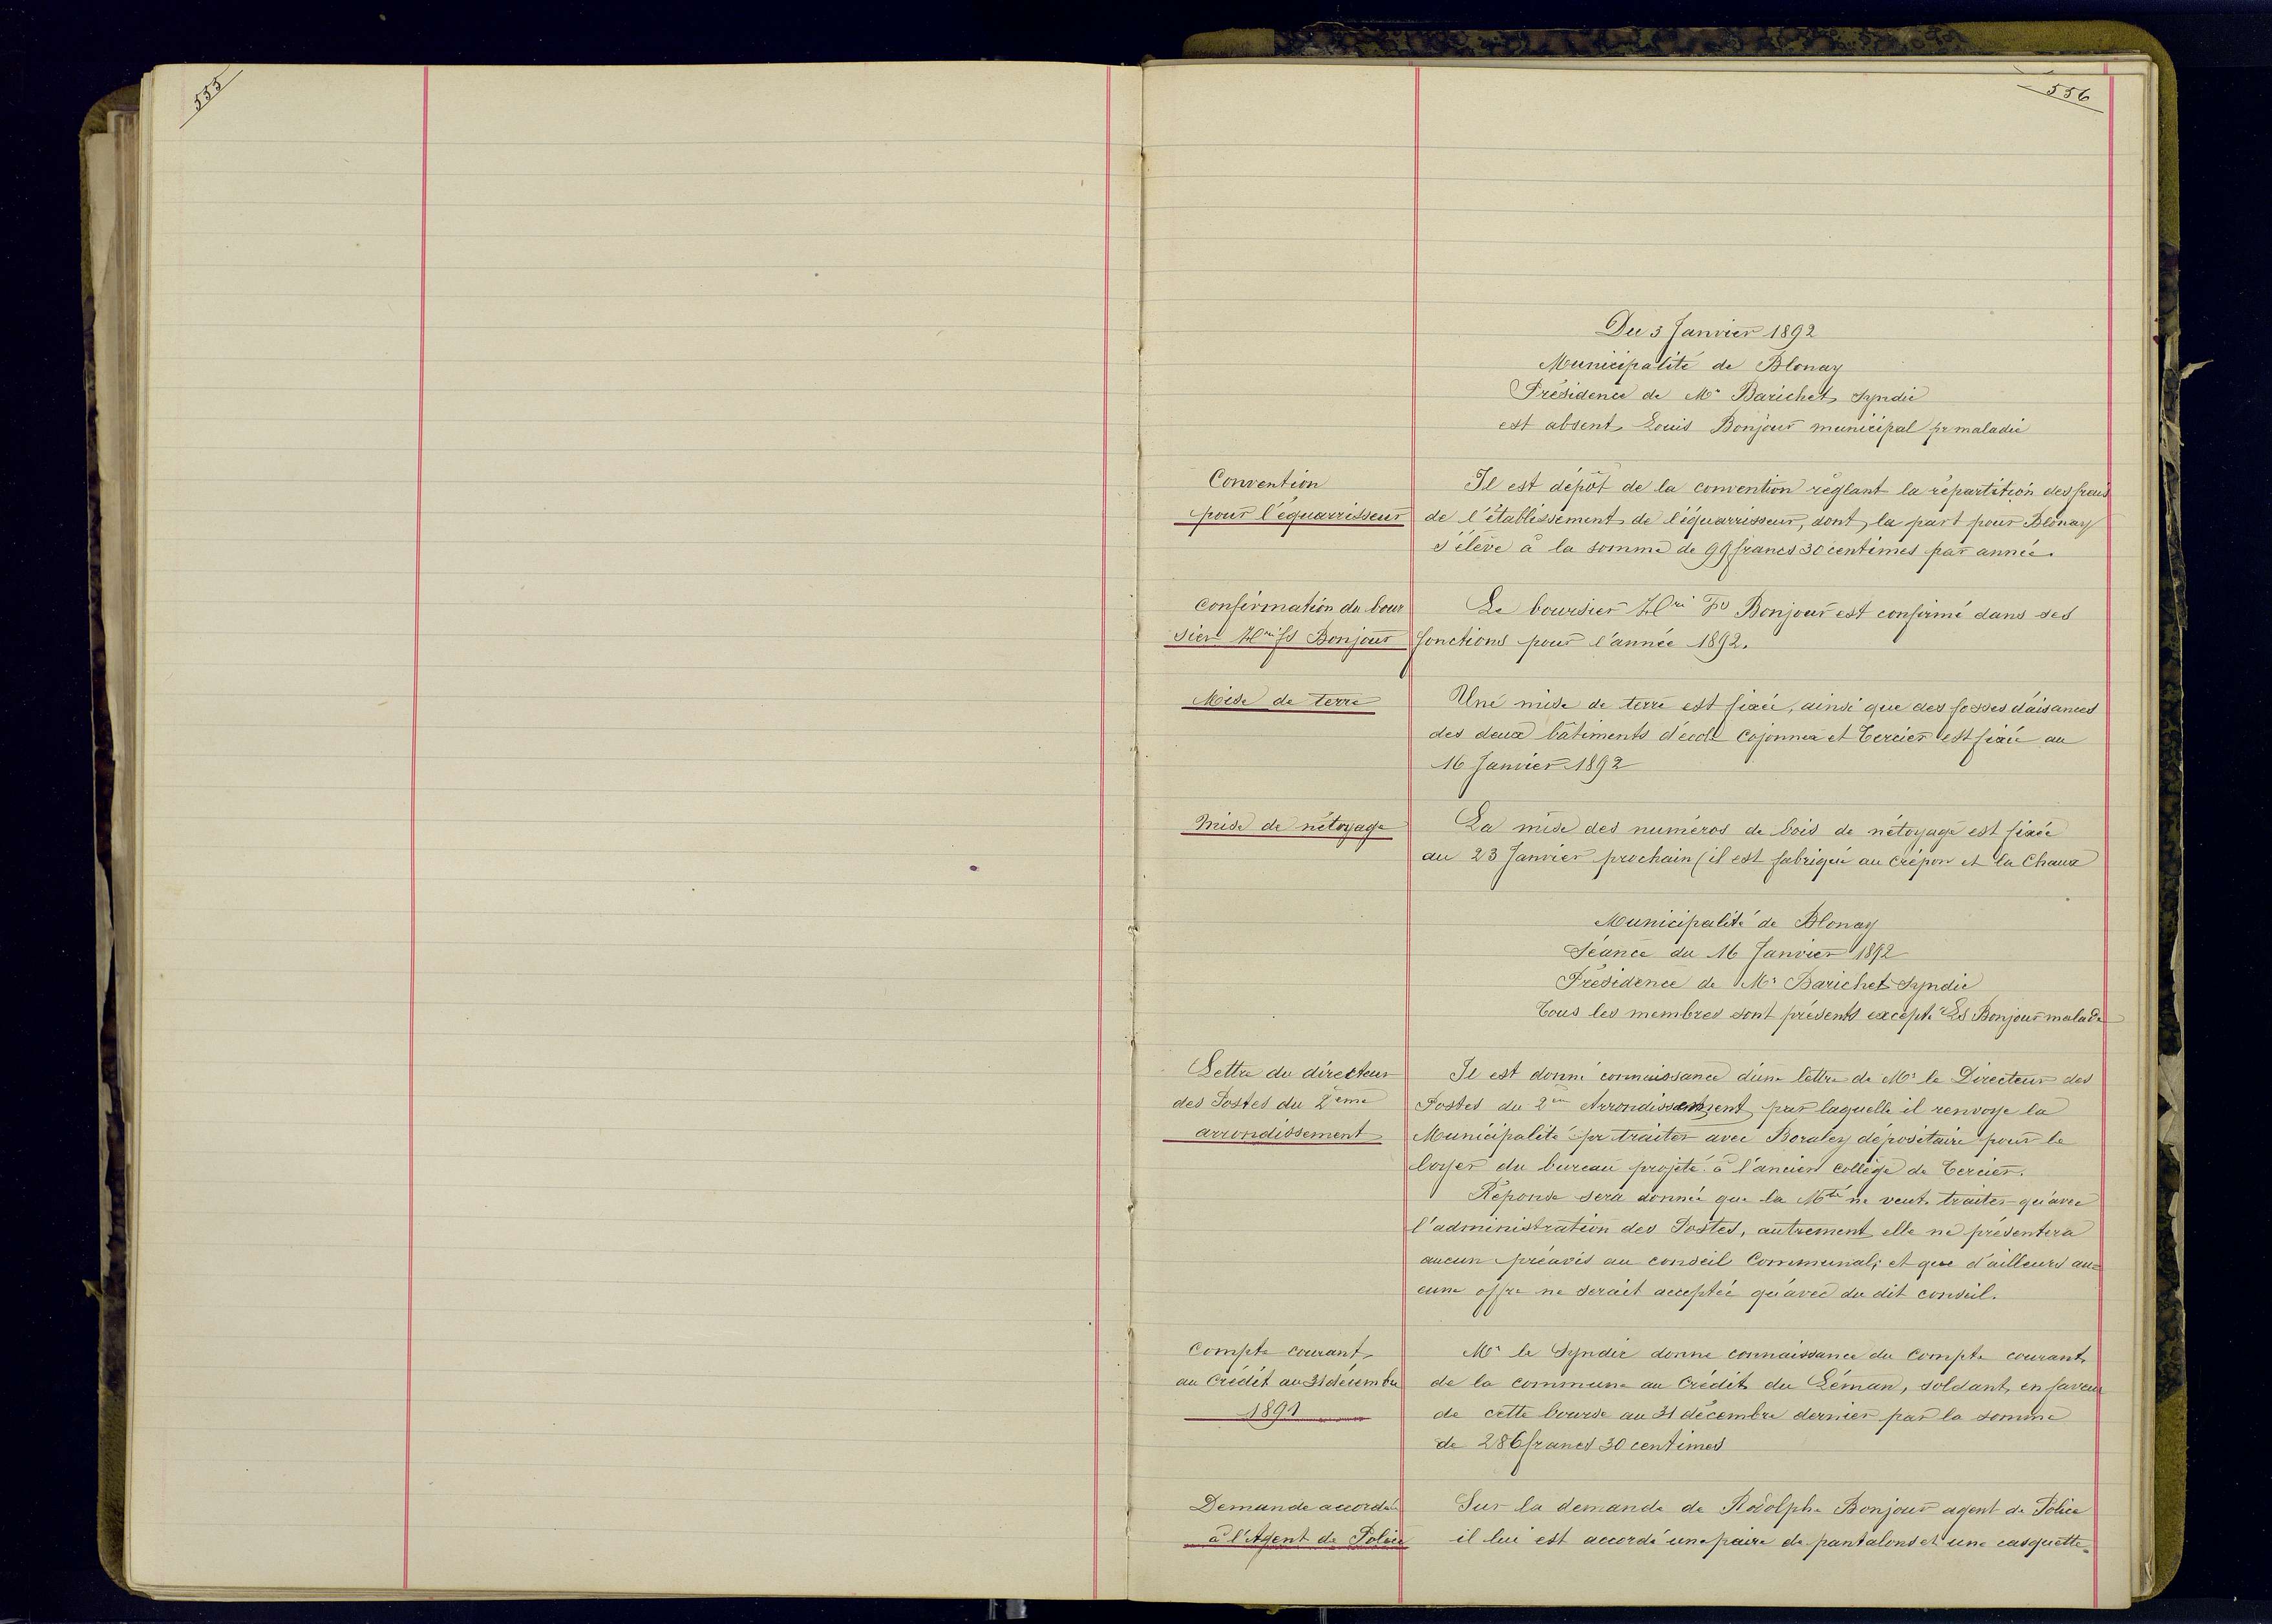 555
556
Du 3 Janvier 1892
Municipalité de Blonay
Présidence de Mr Barichet Syndic
est absent Louis Bonjour municipal pr maladie
Convention
pour l'équarrisseur
Il est dépôt de la convention réglant la répartition des frais
de l'établissement de l'équarrisseur, dont la part pour Blonay
s'élève à la somme de 99 francs 30 centimes par année.
Confirmation du bour
sier Hri fs Bonjour
Le boursier Hri Fs Bonjour est confirmé dans ses
fonctions pour l'année 1892.
Mise de terre
Une mise de terre est fixée, ainsi que des fosses d'aisances
des deux bâtiments d'école Cojonnex et Tercier est fixée au
16 Janvier 1892
Mise de nétoyage
La mise des numéros de bois de nétoyage est fixée
au 23 Janvier prochain (il est fabriqué au Crépon et la Chaux
Municipalité de Blonay
Séance du 16 Janvier 1892
Présidence de Mr Barichet Syndic
Tous les membres sont présents excepté Ls Bonjour malade
Lettre du directeur
des Postes du 2ème
arrondissement
Il est donné connaissance d'une lettre de Mr le Directeur des
Postes du 2me Arrondissement par laquelle il renvoye la
Municipalité pr traiter avec Boraley dépositaire pour le
loyer du bureau projeté à l'ancien collège de Tercier.
Réponse sera donnée que la Mté ne veut traiter qu'avec
l'administration des Postes, autrement elle ne présentera
aucun préavis au conseil Communal; et que d'ailleurs au=
cune offre ne serait acceptée qu'avec du dit conseil.
Compte courant
au Crédit au 31 décembre
1891
Mr le Syndic donne connaissance du compte courant
de la commune au Crédit du Léman, soldant en faveur
de cette bourse au 31 décembre dernier par la somme
de 286 francs 30 centimes
Demande accordée
à l'Agent de Police
Sur la demande de Rodolphe Bonjour agent de Police
il lui est accordé une paire de pantalons et une casquette.